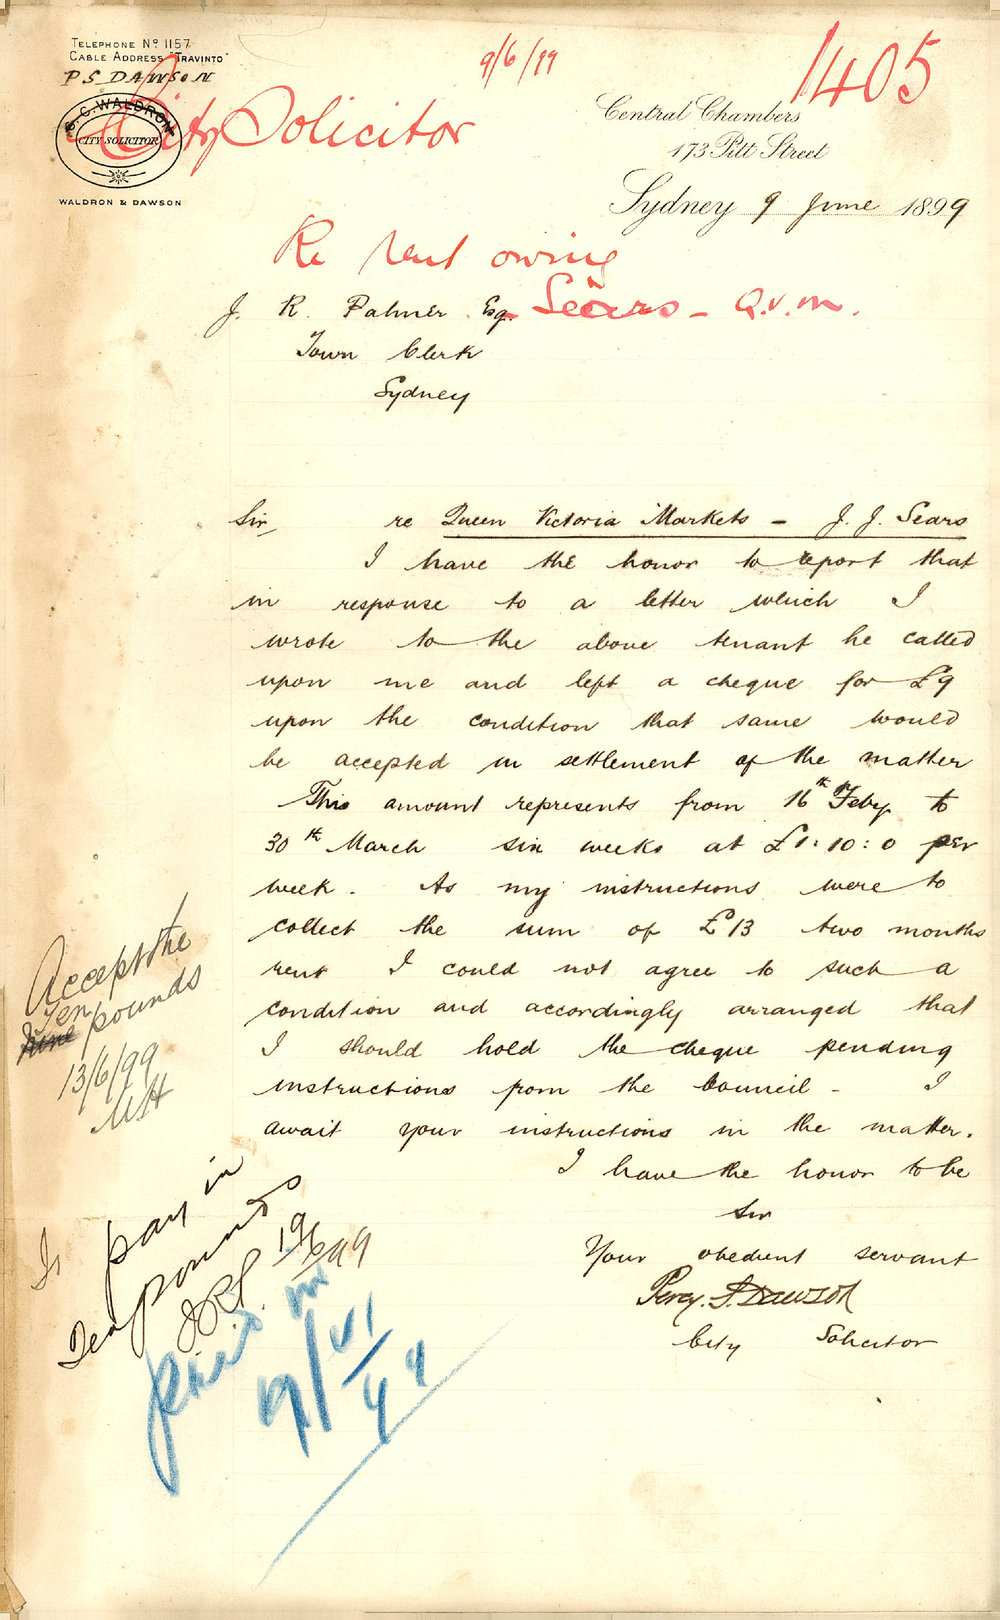 TELEPHONE Nº 1157
CABLE ADDRESS "TRAVINTO"
P S DAWSON
S. C. WALDRON
CITY SOLICITOR
WALDRON & DAWSON
9/6/99
1405
City Solicitor
Central Chambers
173 Pitt Street
Sydney 9 June 1899
Re rent owing
Sears - Q.V.M.
J. R. Palmer Esq.
Town Clerk
Sydney
Sir, re Queen Victoria Markets - J. J. Sears
I have the honor to report that
in response to a letter which I
wrote to the above tenant he called
upon me and left a cheque for £9
upon the condition that same would
be accepted in settlement of the matter
This amount represents from 16th Feby to
30th March six weeks at £1:10:0 per
week. As my instructions were to
collect the sum of £13 two months
rent I could not agree to such a
condition and accordingly arranged that
I should hold the cheque pending
instructions from the Council - I
await your instructions in the matter.
I have the honor to be
Sir
Your obedient servant
Percy. S. Dawson
City Solicitor
Accept the
Ten
nine pounds
13/6/99
MH
pay in
Ten pounds
JRP 19/6/99